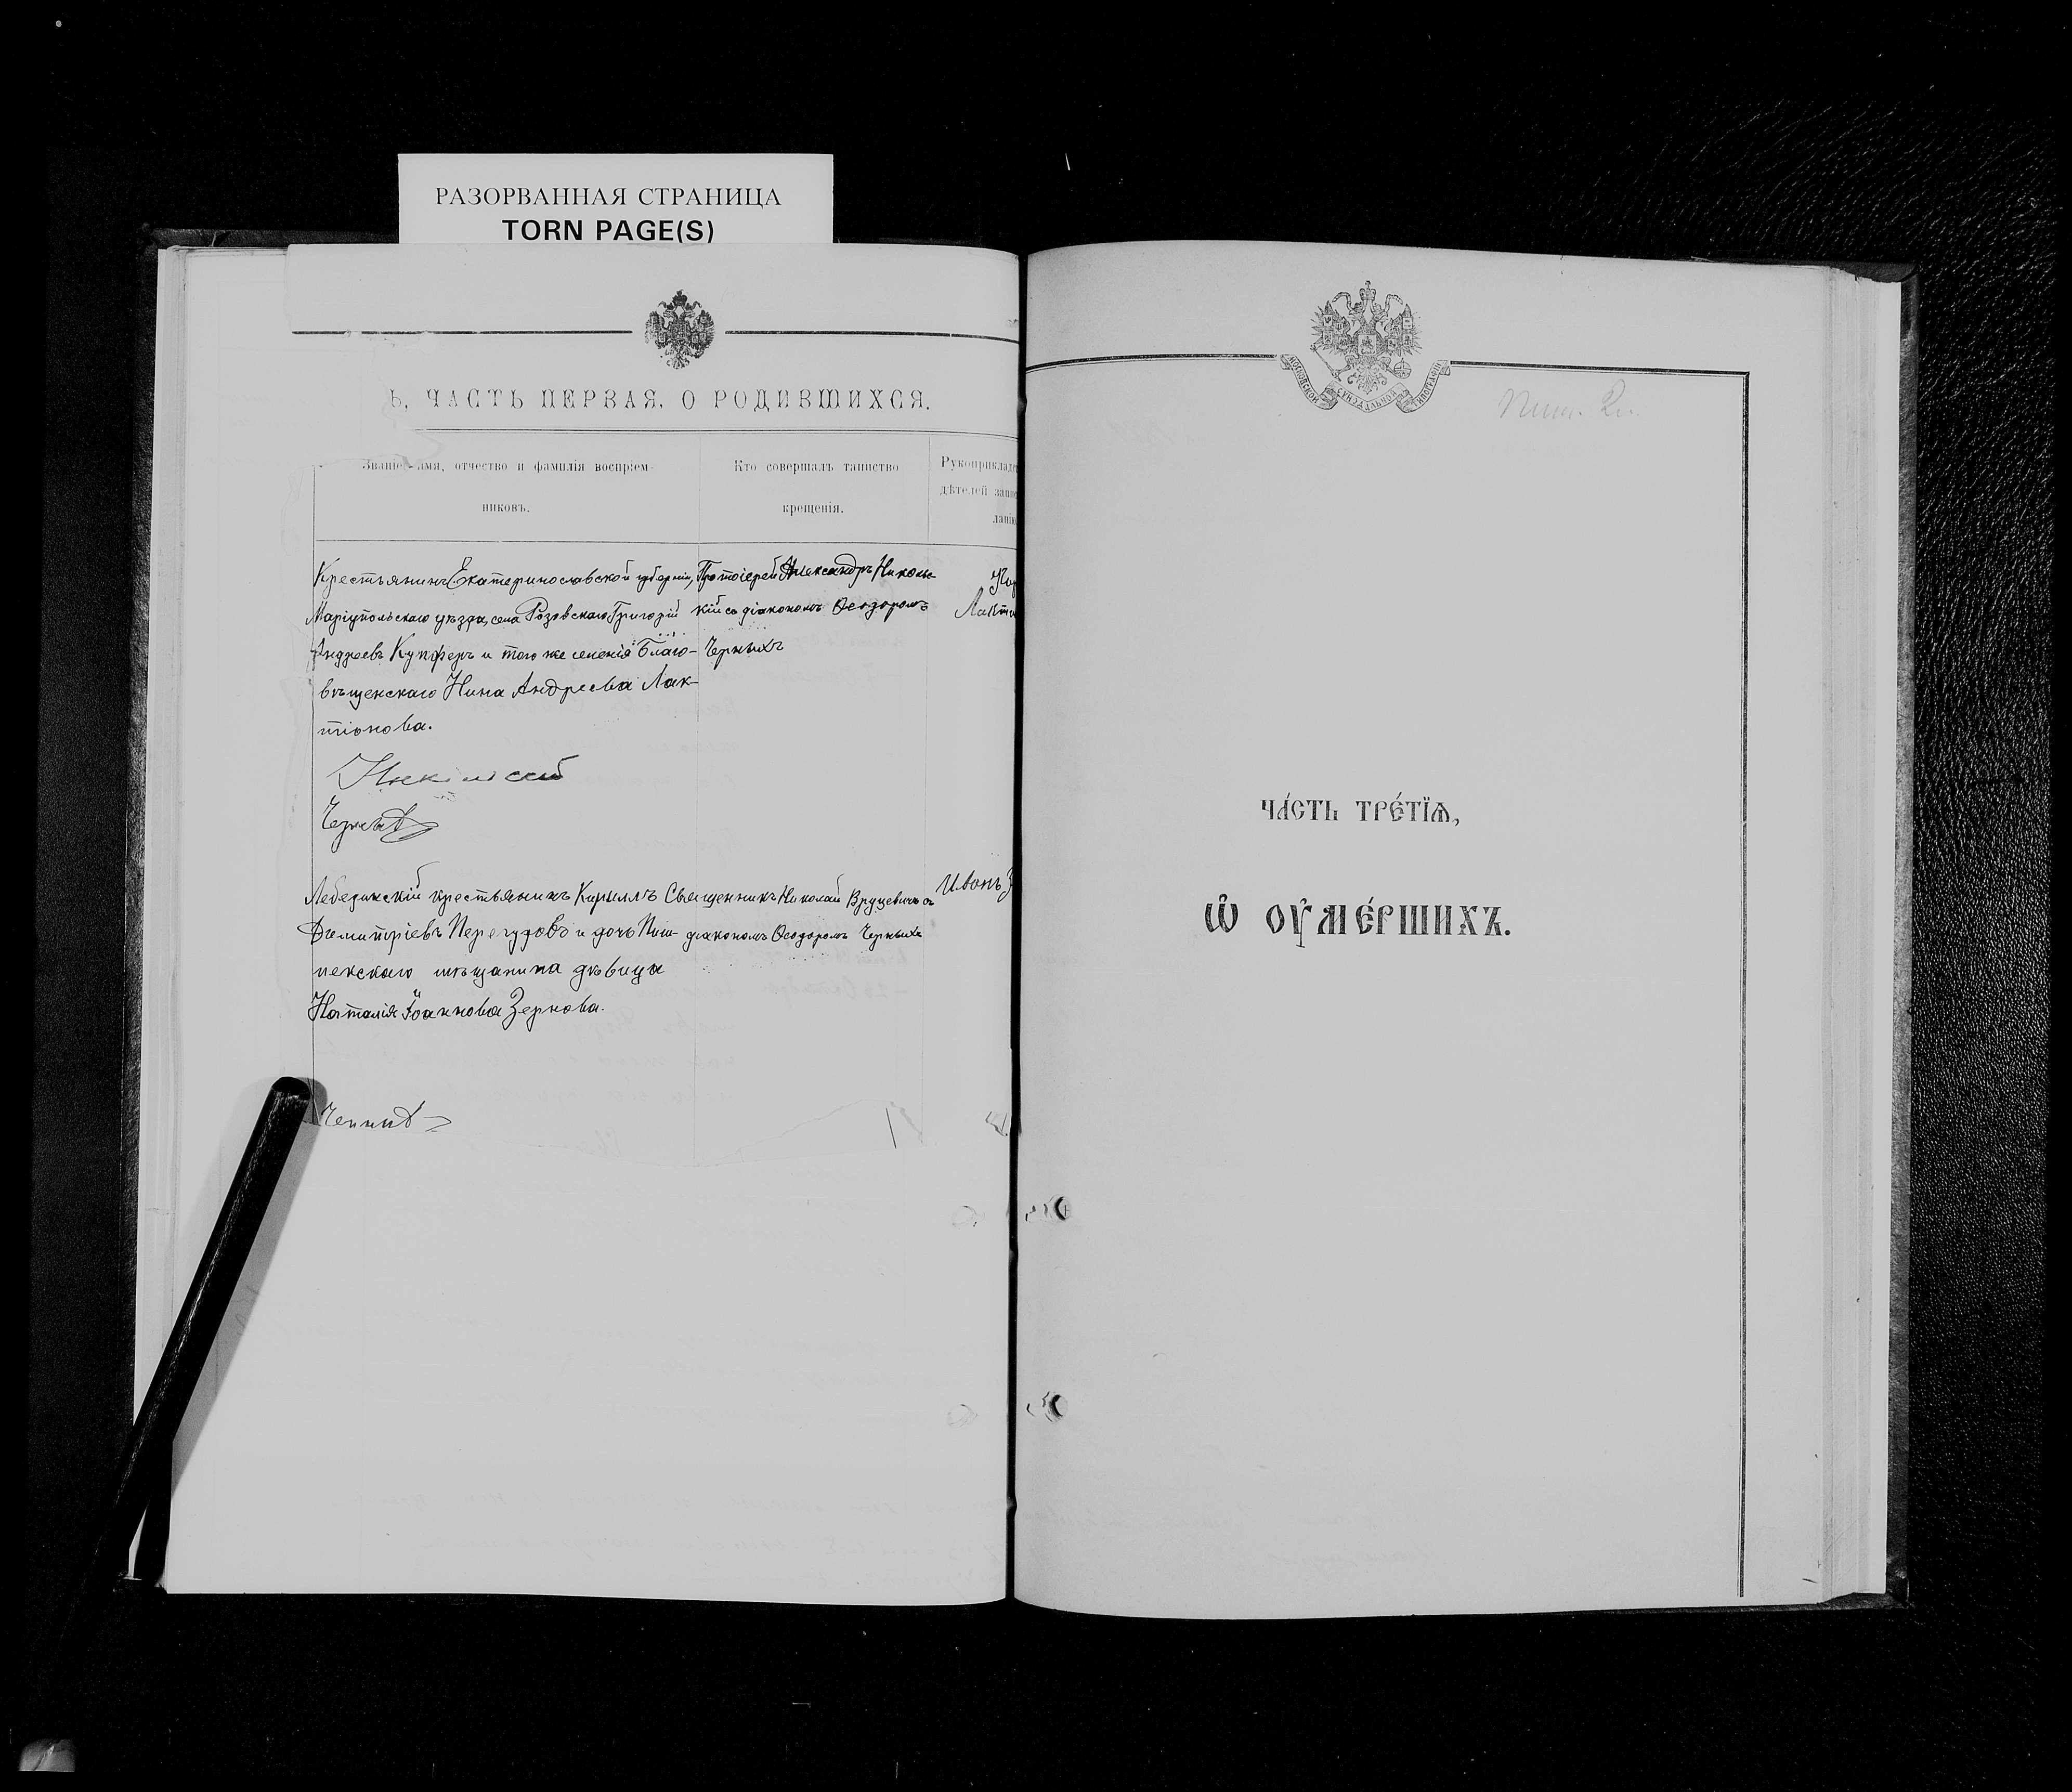 РАЗОРВАННАЯ СТРАНИЦА
TORN PAGE(S)
Ь, ЧАСТЬ ПЕРВАЯ, О РОДИВШИХСЯ.
Званіе имя, отчество и фамилія воспріем-
никовъ.
Кто совершалъ таинство
крещенія.
Рукоприклад
дѣтелей запи
ланію
Крестьянинъ Екатеринославской губерніи,
Маріупольскаго уѣзда, села Розовскаго Григорій
Андреевъ Купферъ и того же селенія Благо-
вѣщенскаго Нина Андреева Лак-
тіонова.
Протоіерей Александръ Николь-
кій со діакономъ Ѳеодоромъ
Черныхъ
Лакті
Никольскій
Черныхъ
Лебединскій крестьянинъ Кириллъ
Димитріевъ Перегудовъ и дочь Пиш-
пекскаго мѣщанина дѣвица
Наталія Іоаннова Зернова.
Священникъ Николай Вруцевичъ съ
діакономъ Ѳеодоромъ Черныхъ
Иванъ З
Черныхъ
МОСКОВСКОЙ СѴНОДАЛЬНОЙ ТИПОГРАФІИ
ЧА́СТЬ ТРЕ́ТЇѦ,
Ѡ҆ ОУ҆МЕ́РШИХЪ.